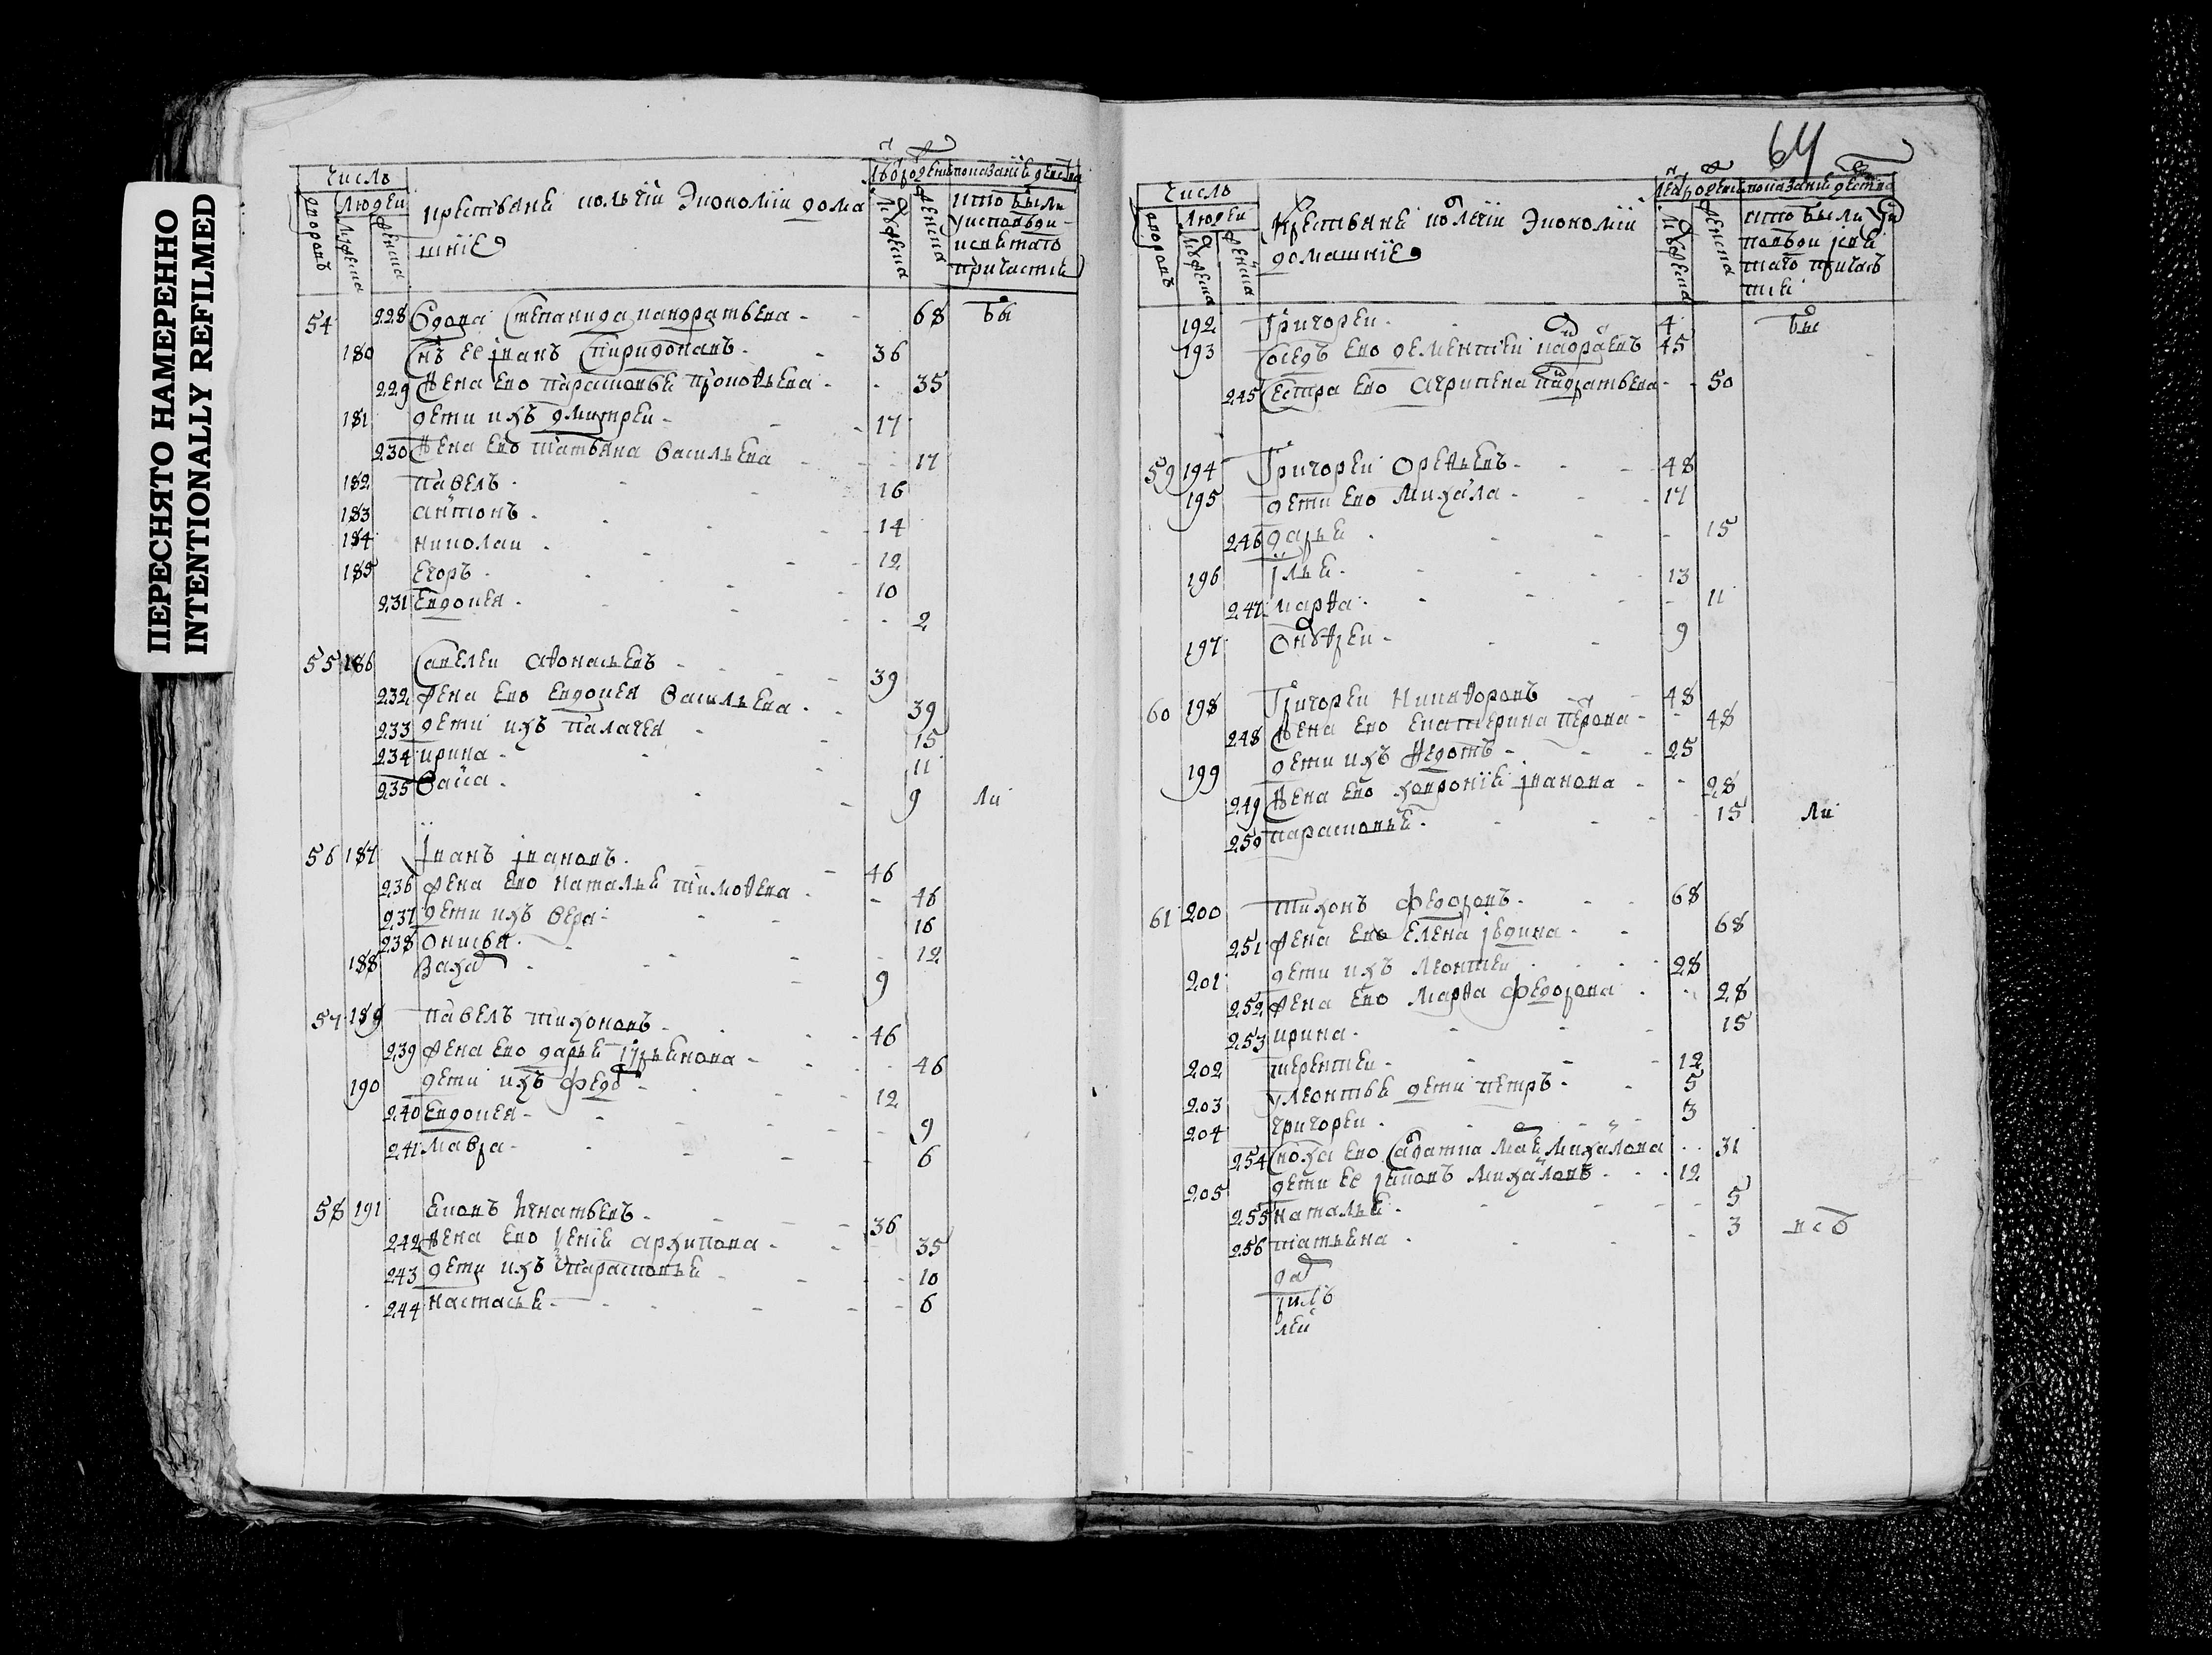 ПЕРЕСНЯТО НАМЕРЕННО
INTENTIONALLY REFILMED
число
дворовъ
людеи
мужеска
женска
крестьяне колегїи экономїи дома
шнїе
лета от рожденїя
мужеска
женска
показанїе действа
кто были
у исповеди
и святаго
причастия
54 228 вдова степанида кандратьева - 68 бы
180 снъ ее иванъ спиридоновъ - 36
229 жена ево парасковья прокофьева - 35
181 дети ихъ дмитреи - 17
230 жена ево татьяна васильева - 17
182 павелъ - 16
183 антонъ - 14
184 николаи - 12
185 егоръ - 10
231 евдокея - 2
55 186 савелеи афонасьевъ - 39
232 жена ево евдокея васильева - 39
233 дети ихъ палагея - 15
234 ирина - 11
235 васа - 9 ли
56 187 иванъ ивановъ - 46
236 жена ево наталья тимофева - 46
237 дети ихъ вера - 16
238 онисья - 12
188 заха - 9
57 189 павелъ тихоновъ - 46
239 жена ево дарья - 46
190 дети ихъ федо - 12
240 евдокея - 9
241 мавра - 6
58 191 яковъ игнатьевъ - 36
242 жена ево архипова - 35
243 дети ихъ парасковья - 10
244 настасья - 6
64
число
дворовъ
людеи
мужеска
женска
крестьяне колегїи экономїи
домашнїе
лета от рожденїя
мужеска
женска
показанїе действа
кто были у и
поведи и свя
таго причас
тия
192 григореи - 4 бы
193 соседъ ево дементеи кадраевъ 45
245 сестра ево агрипена кадратьева - 50
59 194 григореи орефьевъ - 48
195 дети ево михаила - 17
246 дарья - 15
196 илья - 13
247 марфа - 11
197 онуфреи - 9
60 198 григореи никифоровъ - 48
248 жена ево екатерина петрова - 48
199 дети ихъ федотъ - 25
249 жена ево хавронїя иванова - 28
250 парасковья - 15 ли
61 200 тихонъ федоровъ - 68
251 жена ево елена - 68
201 дети ихъ леонтеи - 28
252 жена ево марфа федорова - 28
253 ирина - 15
202 терентеи - 12
203 у леонтья дети петръ - 5
204 григореи - 3
254 сноха ево салдатка михаилова - 31
205 дети ее яковъ михаиловъ - 12
255 наталья - 5
256 татьяна - 3 всѣ